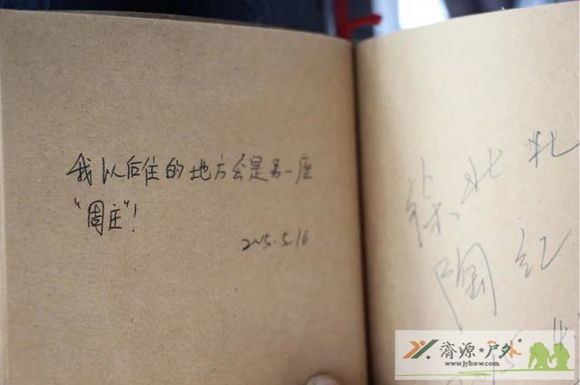 我以后住的地方会是另一座
“周庄”！
2015.5.16
陶红
济源·户外
www.jyhww.com